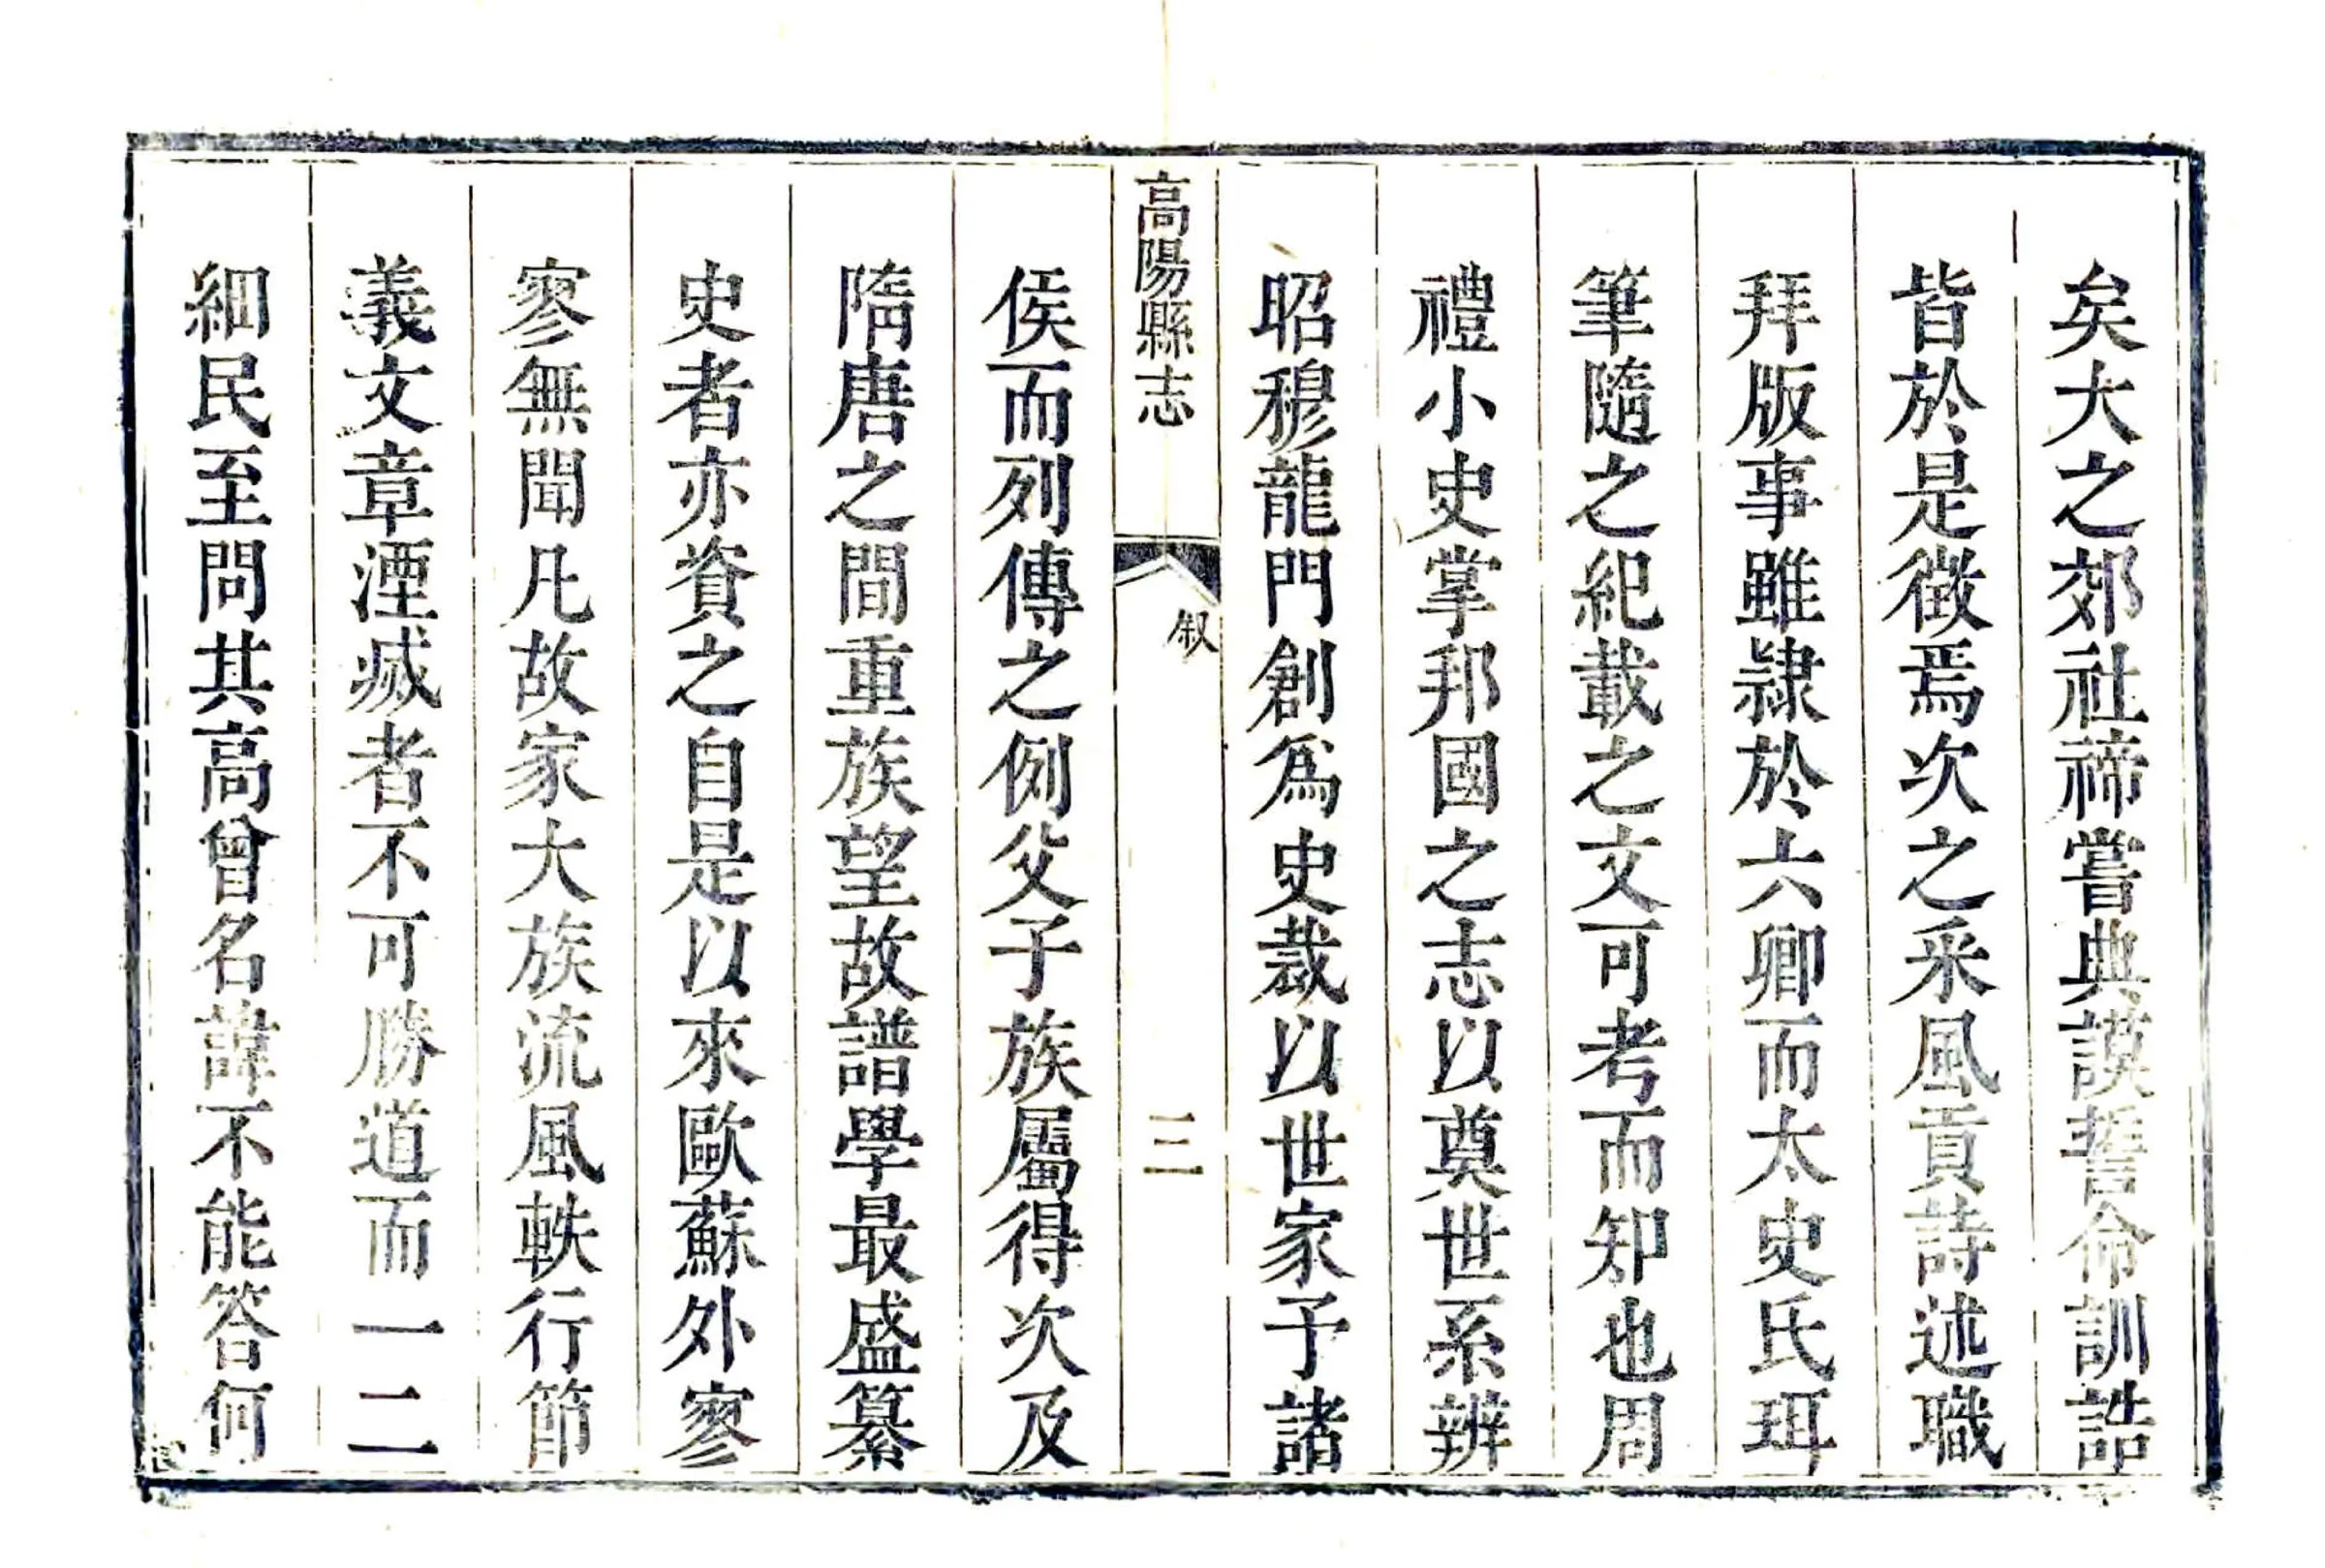 矣大之郊社禘嘗典謨誓命訓誥
皆於是徴焉次之釆風貢詩述職
拜版事雖隷於六卿而太史氏珥
筆隨之紀載之文可考而知也周
禮小史掌邦國之志以奠世系辨
昭穆龍門創爲史裁以世家予諸
高陽縣志
叙
三
侯而列傳之例父子族屬得次及
隋唐之間重族望故譜學最盛纂
史者亦資之自是以來歐蘇外寥
寥無聞凡故家大族流風軼行節
義文章湮滅者不可勝道而一二
細民至問其高曾名諱不能答何